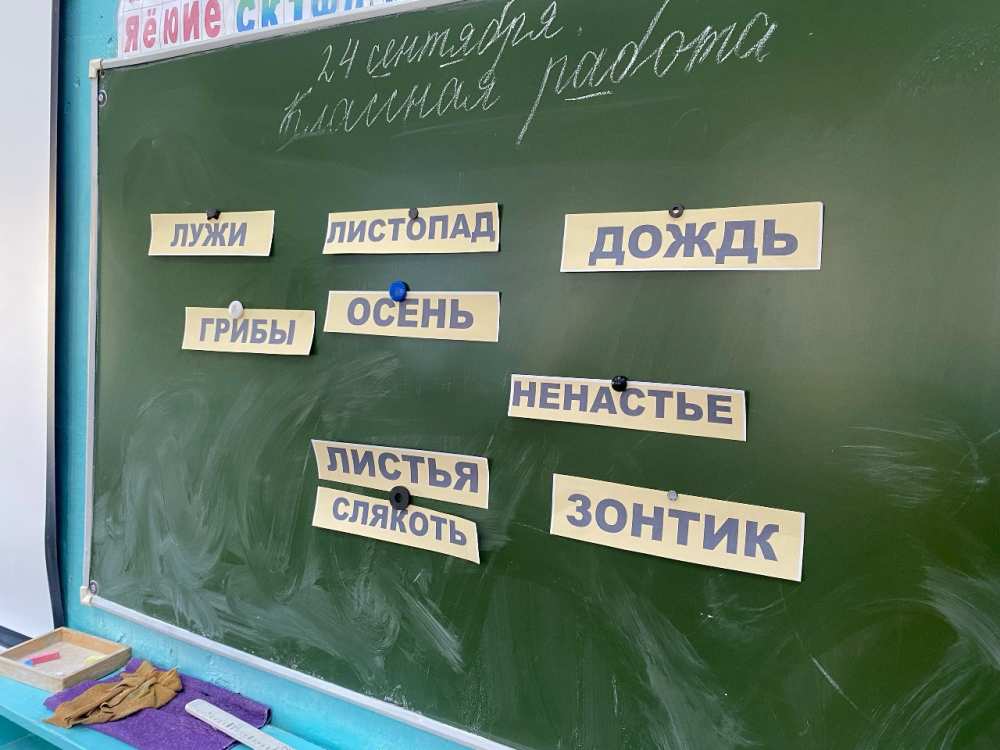 24 сентября.
Классная работа
ЛУЖИ
ЛИСТОПАД
ДОЖДЬ
ГРИБЫ
ОСЕНЬ
НЕНАСТЬЕ
ЛИСТЬЯ
СЛЯКОТЬ
ЗОНТИК